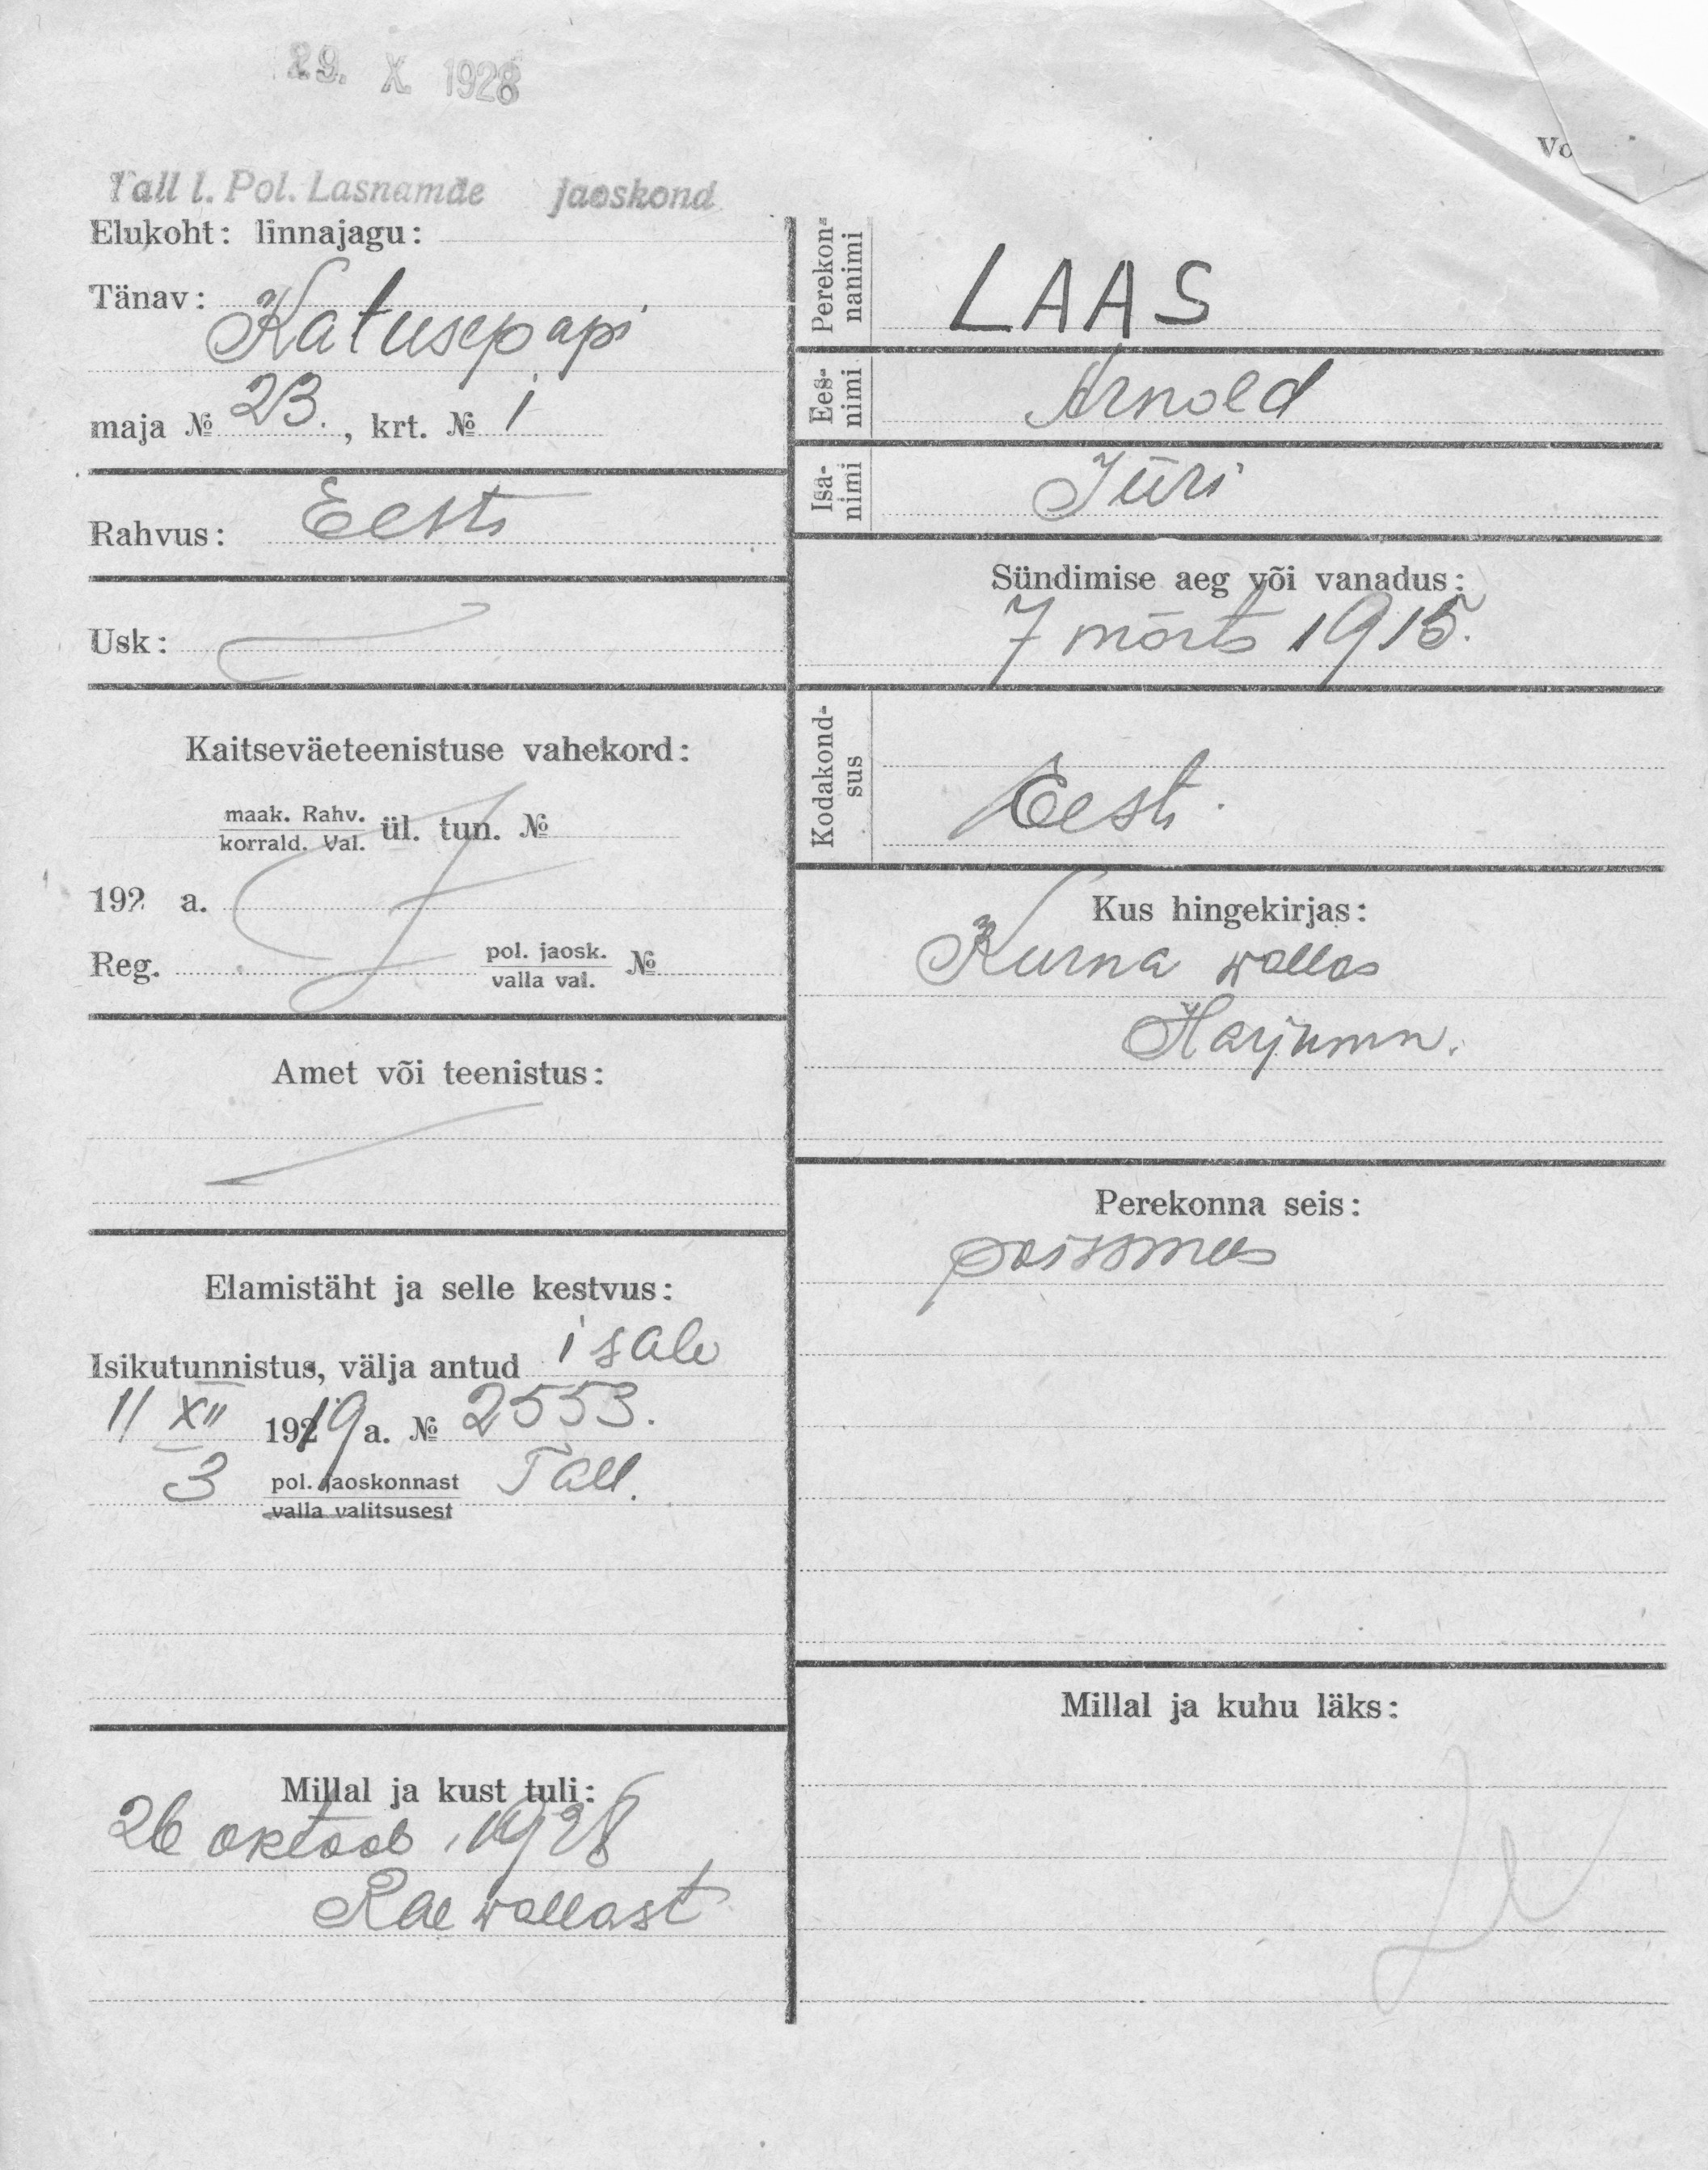 29. X. 1928
Tall l. Pol. Lasnamäe jaoskond
Elukoht: linnajagu:
Tänav: Katusepapi
maja № 23., krt. № 1
Rahvus: Eesti
Usk:
Kaitseväeteenistuse vahekord:
maak. Rahv.
korrald. Val. ül. tun. №
192 a.
Reg. pol. jaosk.
valla val. №
Amet või teenistus:
Elamistäht ja selle kestvus:
Isikutunnistus, välja antud isale
11 XII 1919 a. № 2553.
3 pol. jaoskonnast Tall.
valla valitsusest
Millal ja kust tuli:
26 oktoob. 1928
Rae wallast
Perekon-
nanimi
LAAS
Ees-
nimi
Arnold
Isa-
nimi
Jüri
Sündimise aeg või vanadus:
7 märts 1915.
Kodakond-
sus
Eesti.
Kus hingekirjas:
Kurna wallas
Harjumm.
Perekonna seis:
poissmees
Millal ja kuhu läks: